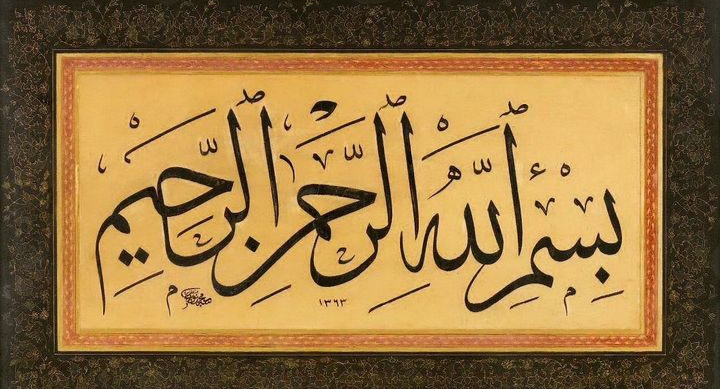 بِسْمِ اللّٰهِ الرَّحْمٰنِ الرَّحِيمِ
١٣٦٣